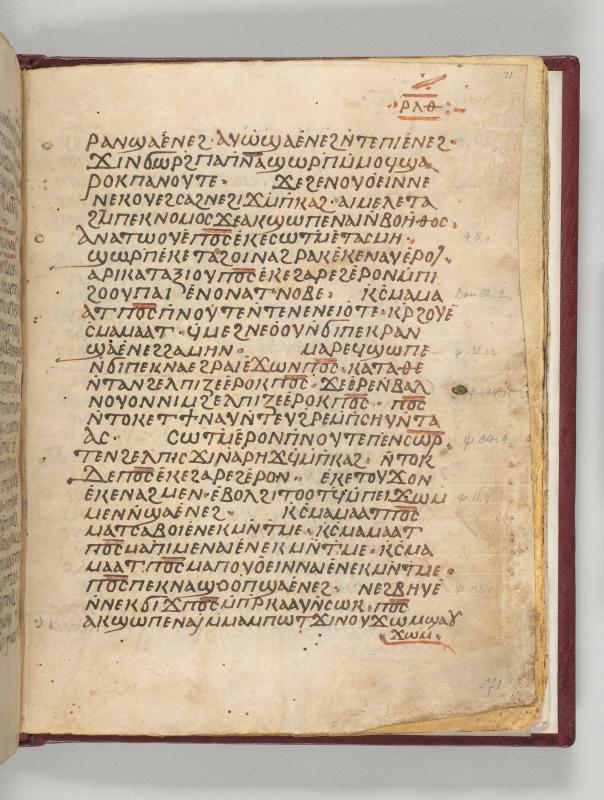 ⲣⲗⲑ
ⲣⲁⲛϣⲁⲉⲛⲉϩ· ⲁⲩⲱϣⲁⲉⲛⲉϩⲛ̀ⲧⲉⲡⲓⲉⲛⲉϩ·
ϫⲓⲛϭⲱⲣϩⲡⲁⲡ̅ⲛ̅ⲁ̅ϣⲱⲣⲡⲙ̀ⲙⲟϥϣⲁ
ⲣⲟⲕⲡⲁⲛⲟⲩⲧⲉ· ϫⲉϩⲉⲛⲟⲩⲟⲉⲓⲛⲛⲉ
ⲛⲉⲕⲟⲩⲉϩⲥⲁϩⲛⲉϩⲓϫⲙ̀ⲡⲕⲁϩ· ⲁⲓⲙⲉⲗⲉⲧⲁ
ϩⲙ̀ⲡⲉⲕⲛⲟⲙⲟⲥϫⲉⲁⲕϣⲱⲡⲉⲛⲁⲓⲛ̀ⲃⲟⲏⲑⲟⲥ·
ⲁⲛⲁⲧⲟⲟⲩⲉ̀ⲡ̅ⲟ̅ⲥ̅ⲉⲕⲉⲥⲱⲧⲙ̀ⲉⲧⲁⲥⲙⲏ·
ϣⲱⲣⲡⲉⲕⲉⲧⲁϩⲟⲓⲛⲁϩⲣⲁⲕⲉ̀ⲕⲉⲛⲁⲩⲉ̀ⲣⲟⲓ̈·
ⲁⲣⲓⲕⲁⲧⲁⲝⲓⲟⲩⲡ̅ⲟ̅ⲥ̅ⲉⲕⲉϩⲁⲣⲉϩⲉ̀ⲣⲟⲛⲙ̀ⲡⲓ
ϩⲟⲟⲩⲡⲁⲓ̈ ⲉⲛⲟⲛⲁⲧⲛⲟⲃⲉ· ⲕ̀ⲥⲙⲁⲙⲁ
ⲁⲧⲡ̅ⲟ̅ⲥ̅ⲡⲛⲟⲩⲧⲉⲛ̀ⲧⲉⲛⲉⲛⲉⲓⲟⲧⲉ· ⲕⲣ̀ϩⲟⲩⲉ̀
ⲥⲙⲁⲙⲁⲁⲧ· ϥ̀ⲙⲉϩⲛⲉⲟ̀ⲟⲩⲛ̀ϭⲓⲡⲉⲕⲣⲁⲛ
ϣⲁⲉⲛⲉϩϩⲁⲙⲏⲛ· ⲙⲁⲣⲉϥϣⲱⲡⲉ
ⲛ̀ϭⲓⲡⲉⲕⲛⲁⲉϩⲣⲁⲓⲉ̀ϫⲱⲛⲡ̅ⲟ̅ⲥ̅· ⲕⲁⲧⲁⲑⲉ
ⲛ̀ⲧⲁⲛϩⲉⲗⲡⲓⲍⲉⲉ̀ⲣⲟⲕⲡ̅ⲟ̅ⲥ̅· ϫⲉⲉ̀ⲣⲉⲛ̀ⲃⲁⲗ
ⲛⲟⲩⲟⲛⲛⲓⲙϩⲉⲗⲡⲓⲍⲉⲉ̀ⲣⲟⲕⲡ̅ⲟ̅ⲥ̅· ⲡ̅ⲟ̅ⲥ̅
ⲛ̀ⲧⲟⲕⲉⲧϯⲛⲁⲩⲛ̀ⲧⲉⲩϩⲣⲉⲙ̀ⲡⲥⲏⲩⲛ̀ⲧⲁ
ⲁⲥ· ⲥⲱⲧⲙ̀ⲉⲣⲟⲛⲡⲛⲟⲩⲧⲉⲡⲉⲛⲥⲱⲣ̅·
ⲧⲉⲛϩⲉⲗⲡⲓⲥϫⲓⲛⲁⲣⲏϫϥⲙ̀ⲡⲕⲁϩ· ⲛ̀ⲧⲟⲕ
ⲇⲉⲡ̅ⲟ̅ⲥ̅ⲉⲕⲉϩⲁⲣⲉϩⲉ̀ⲣⲟⲛ· ⲉ̀ⲕⲉⲧⲟⲩϫⲟⲛ
ⲉ̀ⲕⲉⲛⲁϩⲙⲉⲛ·ⲉⲃⲟⲗϩⲓⲧⲟⲟⲧϥ̀ⲙ̀ⲡⲉⲓϫⲱⲙ
ⲙⲉⲛⲛ̀ϣⲁⲉⲛⲉϩ· ⲕ̀ⲥⲙⲁⲙⲁⲁⲧⲡ̅ⲟ̅ⲥ̅
ⲙⲁⲧⲥⲁⲃⲟⲓⲉ̀ⲛⲉⲕⲙⲛ̀ⲧⲙⲉ· ⲕ̀ⲥⲙⲁⲙⲁⲁⲧ
ⲡ̅ⲟ̅ⲥ̅ⲙⲁⲡⲓⲙⲉⲛⲁⲓⲉ̀ⲛⲉⲕⲙⲛ̀ⲧⲙⲉ· ⲕ̀ⲥⲙⲁ
ⲙⲁⲁⲧⲡ̅ⲟ̅ⲥ̅ⲙⲁⲡⲟⲩⲟⲉⲓⲛⲛⲁⲓⲉⲛⲉⲕⲙⲛ̀ⲧⲙⲉ·
ⲡ̅ⲟ̅ⲥ̅ⲡⲉⲕⲛⲁϣⲟⲟⲡϣⲁⲉⲛⲉϩ· ⲛⲉϩⲃⲏⲩⲉ̀
ⲛ̀ⲛⲉⲕϭⲓϫⲡ̅ⲟ̅ⲥ̅ⲙ̀ⲡⲣⲕⲁⲁⲩⲛ̀ⲥⲱⲕ· ⲡ̅ⲟ̅ⲥ̅
ⲁⲕϣⲱⲡⲉⲛⲁⲓ̈ⲙ̀ⲙⲁⲙⲡⲱⲧϫⲓⲛⲟⲩϫⲱⲙϣⲁⲩ
ϫⲱⲙ·
71